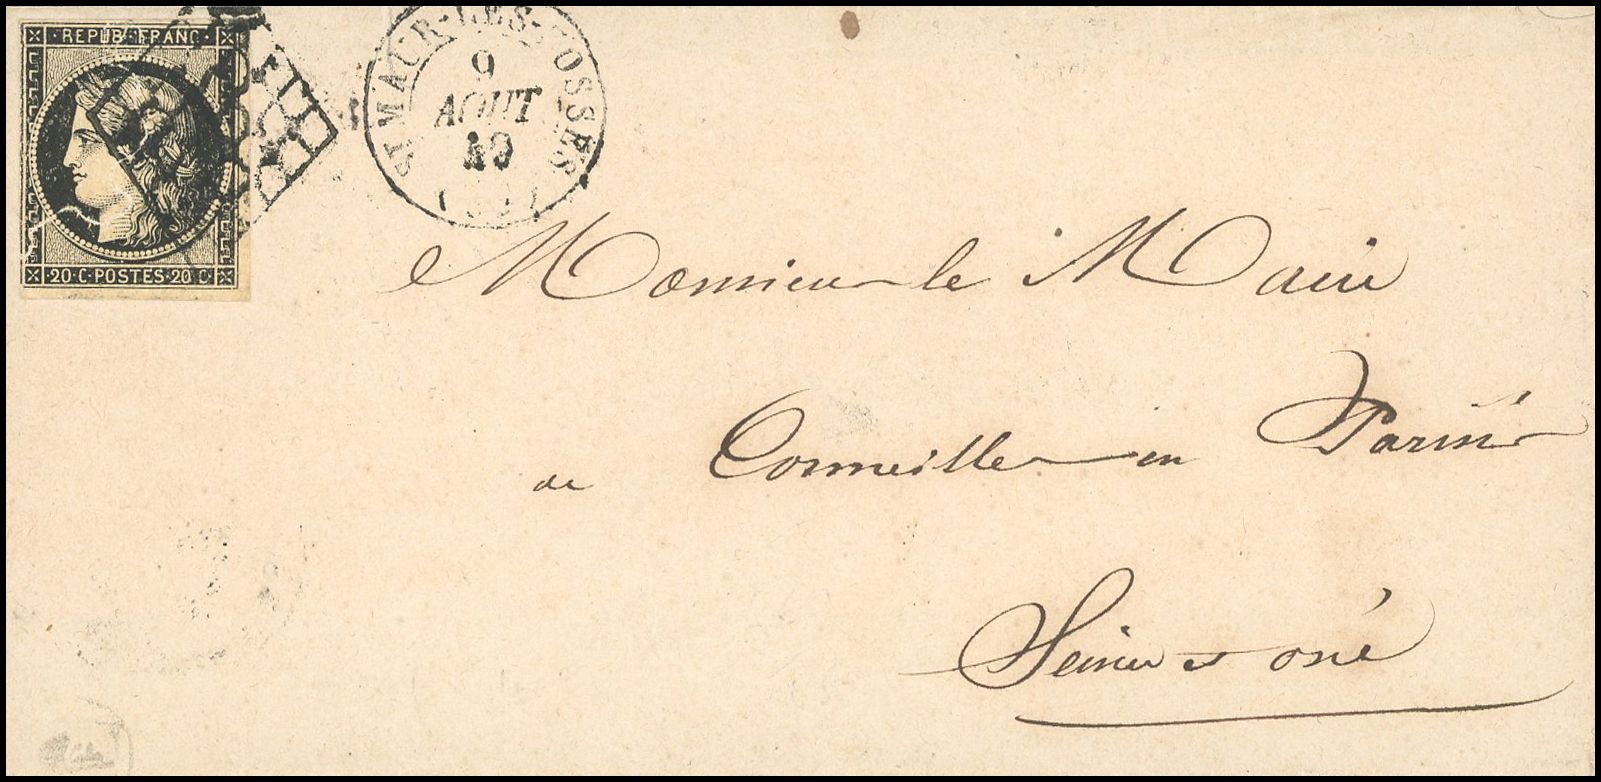 REPUB·FRANC·
20·C·POSTES·20·C·
ST MAUR-LES-FOSSÉS
9
AOUT
49
(60)
Monsieur le Maire
de Cormeille en Parisis
Seine et oise